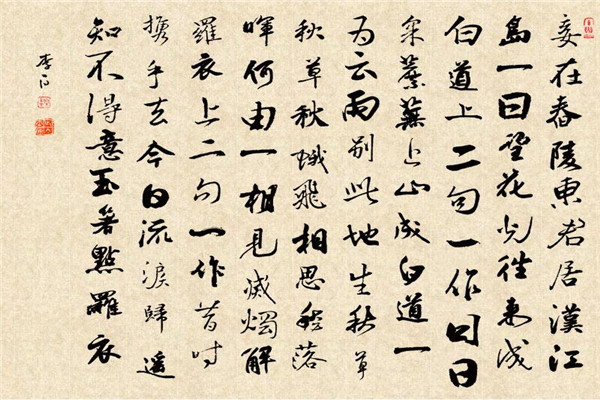 妾在春陵東君居漢江
島一日望花光往來成
白道上二句一作日日
采蘼蕪上山成白道一
为云雨别此地生秋草
秋草秋蛾飛相思愁落
暉何由一相見滅燭解
羅衣上二句一作昔时
攜手去今日流淚歸遥
知不得意玉箸點羅衣
李白